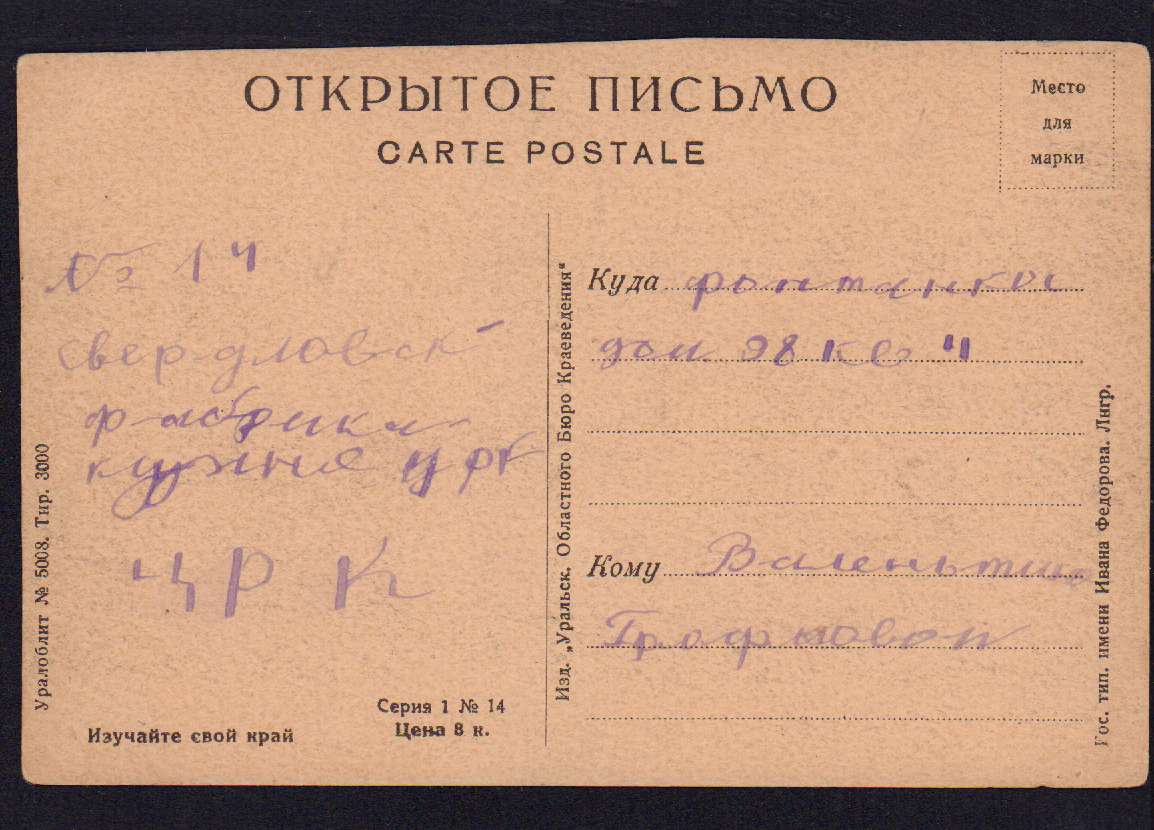 ОТКРЫТОЕ ПИСЬМО
CARTE POSTALE
Место
для
марки
№ 14
Свердловск
фабрика
кухня црк
ЦРК
Уралоблит № 5008. Тир. 3000
Изучайте свой край
Серия 1 № 14
Цена 8 к.
Изд. „Уральск. Областного Бюро Краеведения"
Куда фонтанка
дом 98 кв 4
Кому
Гос. тип. имени Ивана Федорова. Лнгр.